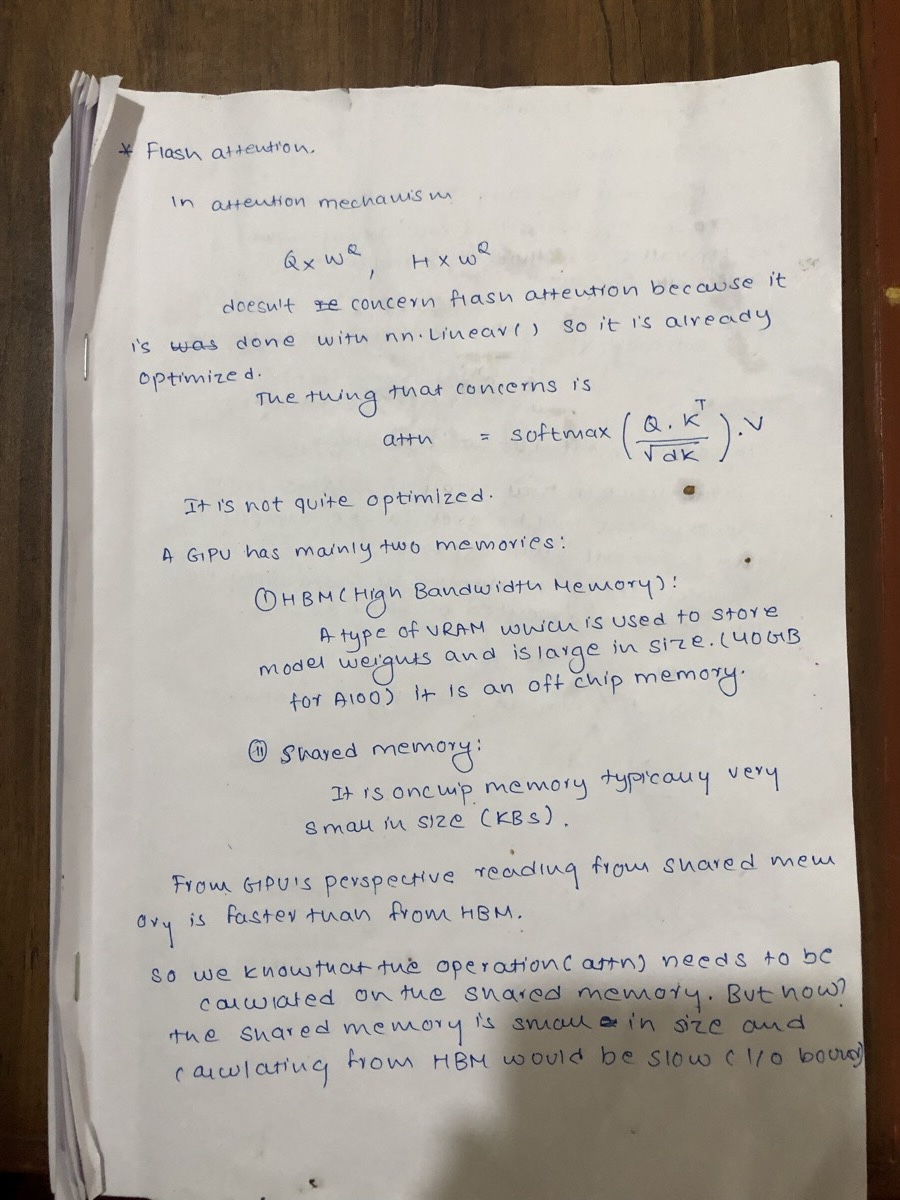 * Flash attention.
In attention mechanism
Q x W^Q, H x W^Q
doesn't concern flash attention because it
is was done with nn.Linear() so it is already
optimized.
The thing that concerns is
attn = softmax (Q . K^T / √dK) . V
It is not quite optimized.
A GPU has mainly two memories:
① HBM (High Bandwidth Memory):
A type of VRAM which is used to store
model weights and is large in size. (40GB
for A100) it is an off chip memory.
② Shared memory:
It is onchip memory typically very
small in size (KBs).
From GPU's perspective reading from shared mem
ory is faster than from HBM.
So we know that the operation (attn) needs to be
calculated on the shared memory. But how?
the shared memory is small in size and
calculating from HBM would be slow (I/O bound)